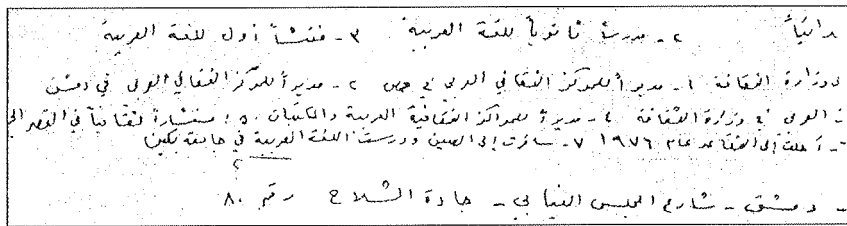 ٢ - مدرساً ثانوياً للغة العربية ٣ - مفتشاً أول للغة العربية
وزارة الثقافة ١ - مديراً للمركز الثقافي العربي في حمص ٢ - مديراً للمركز الثقافي العربي في دمشق
العربي في وزارة الثقافة ٤ - مديراً للمراكز الثقافية العربية والمكتبات ٥ - مستشاراً ثقافياً في القصر
أحلت إلى التقاعد عام ١٩٧٦ ٧ - سافرت إلى الصين ودرست اللغة العربية في جامعة بكين
دمشق - شارع المجلس النيابي - جادة الشلاح رقم ٨٠